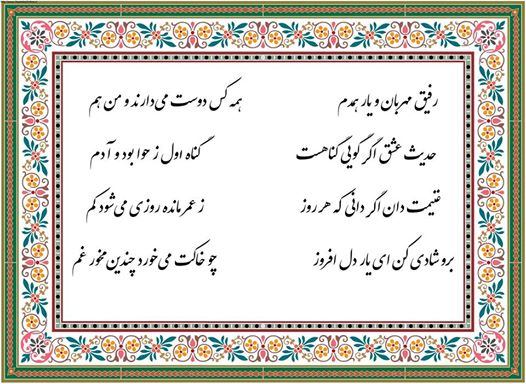 رفیق مهربان و یار همدم همه کس دوست می‌دارند و من هم
حدیث عشق اگر گویی گناهست گناه اول ز حوا بود و آدم
غنیمت دان اگر دانی که هر روز ز عمر مانده روزی می‌شود کم
برو شادی کن ای یار دل افروز چو خاکت می‌خورد چندین مخور غم